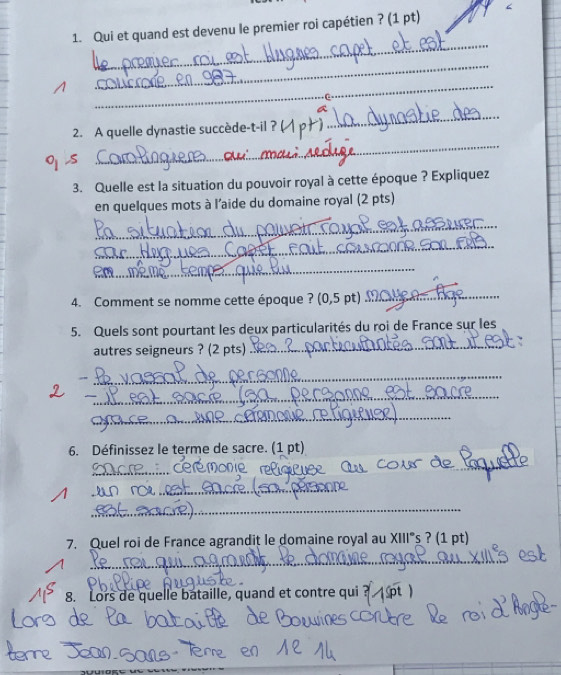 1. Qui et quand est devenu le premier roi capétien ? (1 pt)
Le premier roi est Hugues capet et est
couronné en 987
1
2. A quelle dynastie succède-t-il ? (1pt) à la dynastie des
0,5 Carolingiens oui mais rédige
3. Quelle est la situation du pouvoir royal à cette époque ? Expliquez
en quelques mots à l'aide du domaine royal (2 pts)
La situation du pouvoir royal est assurer
car Hugues Capet fait couronne son fils
en même temps que lui
4. Comment se nomme cette époque ? (0,5 pt) moyen-Âge
5. Quels sont pourtant les deux particularités du roi de France sur les
autres seigneurs ? (2 pts) les 2 particularités sont il est :
- le vassal de personne
2 - il est sacré (sa personne est sacré
grace a une céremonie religieuse)
6. Définissez le terme de sacre. (1 pt)
sacre : céremonie religieuse au cour de laquelle
1 un roi est sacré (sa personne
est sacré)
7. Quel roi de France agrandit le domaine royal au XIII°s ? (1 pt)
1 le roi qui agrandit le domaine royal au XIII°s est
Phillipe Auguste.
1,5 8. Lors de quelle bataille, quand et contre qui ? (1,5pt )
Lors de la bataille de Bouvines contre le roi d'Angle-
terre Jean-sans-Terre en 1214